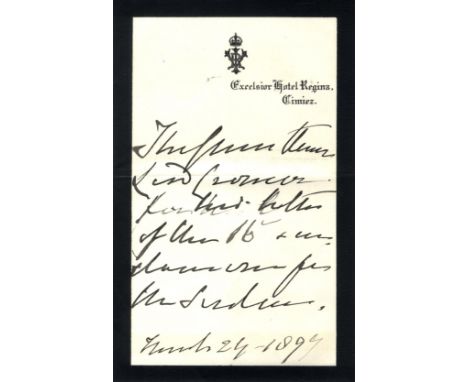 Excelsior Hotel Regina,
Cimiez.
The Queen thanks
Lord Cromer
for his letter
of the 16 & en-
closes one for
the Sirdar.
March 24 - 1897